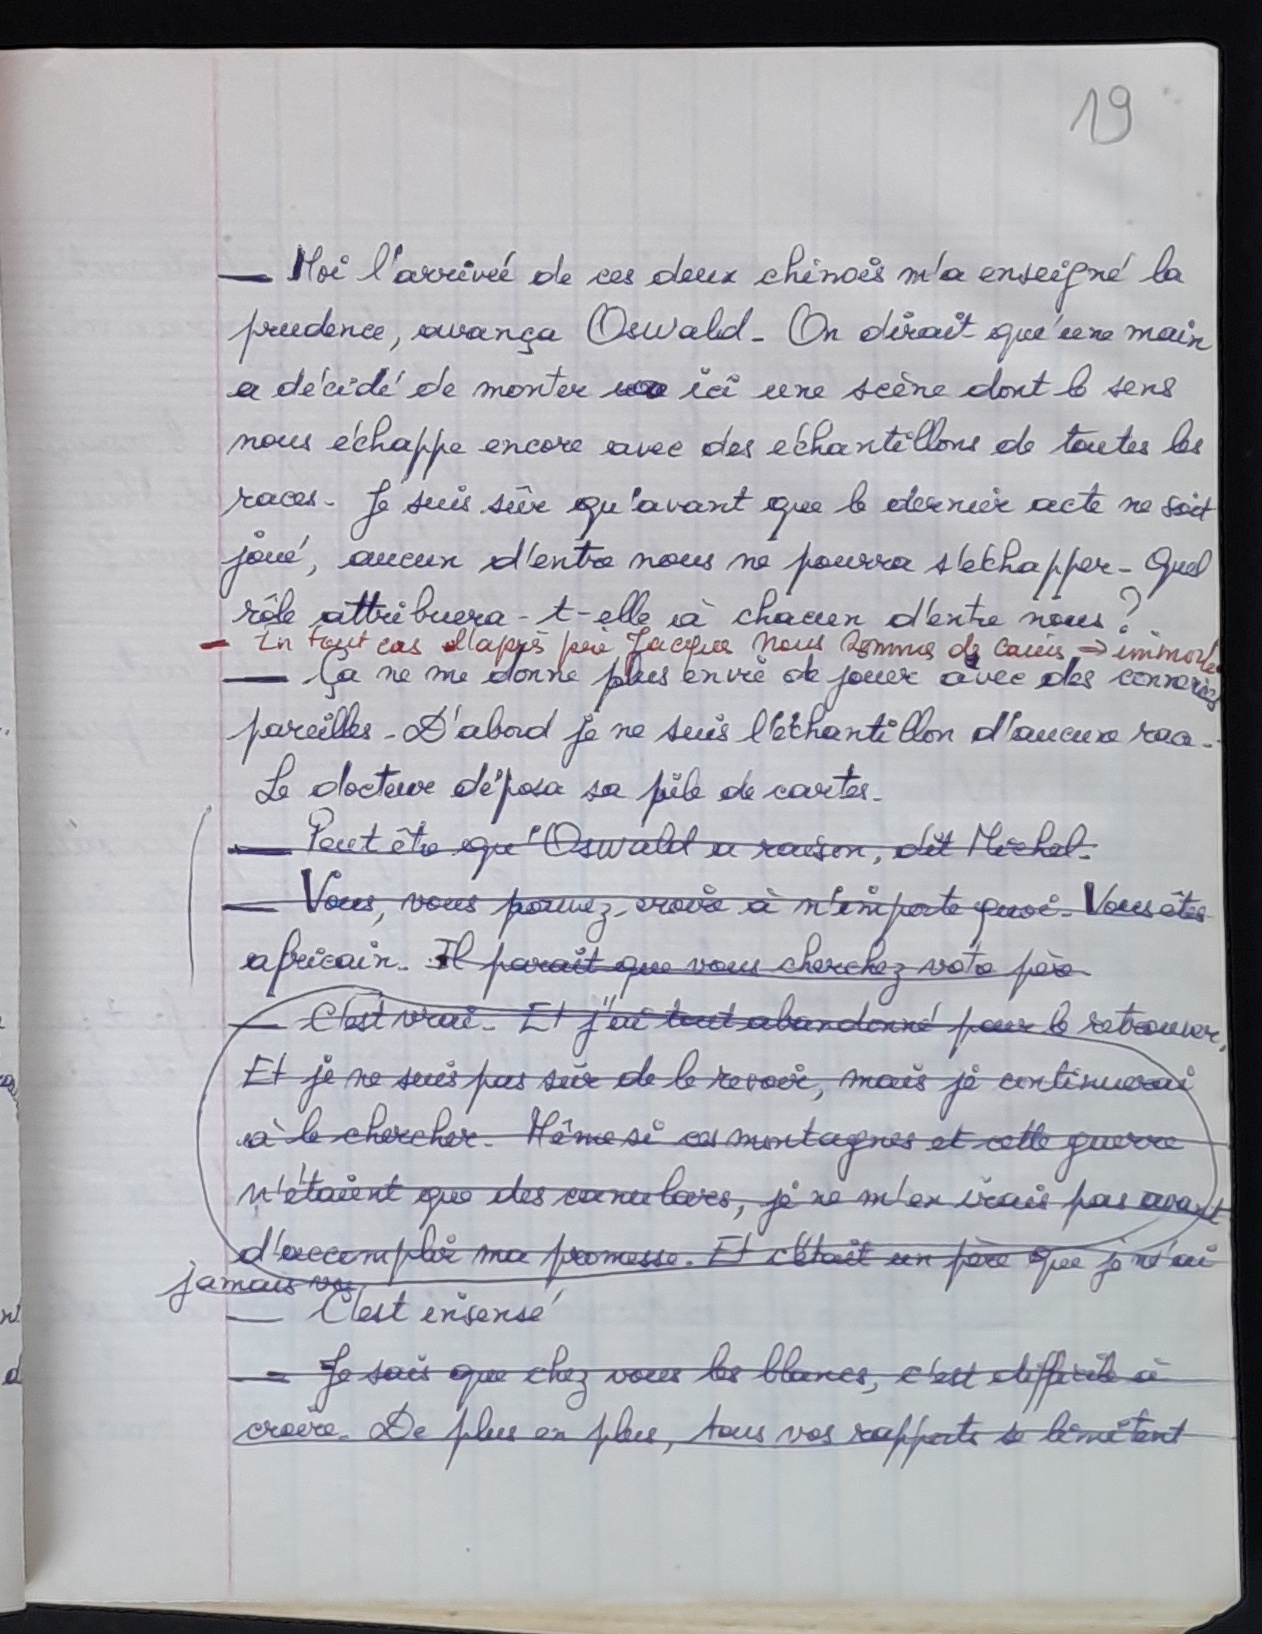 19
— Moi l'arrivée de ces deux chinois m'a enseigné la
prudence, avança Oswald. On dirait qu'une main
a décidé de monter ici une scène dont le sens
nous échappe encore avec des échantillons de toutes les
races. Je suis sûr qu'avant que le dernier acte ne soit
joué, aucun d'entre nous ne pourra s'échapper. Quel
rôle attribuera-t-elle à chacun d'entre nous ?
— En tout cas d'après père Jacques nous sommes de → immortel
— Ça ne me donne plus envie de jouer avec des conneries
pareilles. D'abord je ne suis l'échantillon d'aucune race.
Le docteur déposa sa pile de cartes.
— Peut être qu'Oswald a raison, dit Michel.
— Vous, vous pouvez croire à n'importe quoi. Vous êtes
africain. Il parait que vous cherchez votre père
— C'est vrai. Et j'ai tout abandonné pour le retrouver.
Et je ne suis pas sûr de le revoir, mais je continuerai
à le chercher. Même si ces montagnes et cette guerre
n'étaient que des canulars, je ne m'en irais pas avant
d'accomplir ma promesse. Et c'était un père que je n'ai
jamais vu
— C'est insensé
— Je sais que chez vous les blancs, c'est difficile à
croire. De plus en plus, tous vos rapports se limitent